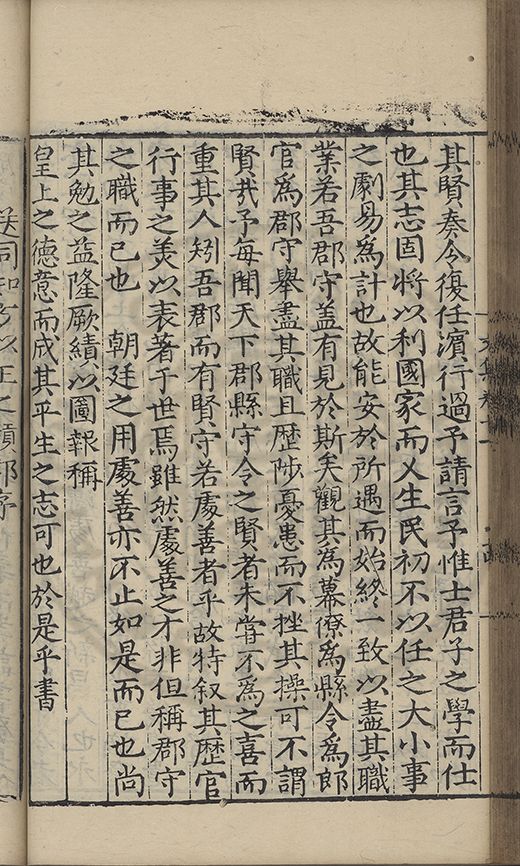 其賢奏今復任濵行過予請言予惟士君子之學而仕
也其志固將以利國家而乂生民初不以任之大小事
之劇易為計也故能安於所遇而始終一致以盡其職
業若吾郡守盖有見於斯矣觀其為幕僚為縣令為郎
官為郡守舉盡其職且歷陟憂患而不挫其操可不謂
賢㢤予每聞天下郡縣守令之賢者未甞不為之喜而
重其人矧吾郡而有賢守若處善者乎故特叙其歷官
行事之美以表著于世焉雖然處善之才非但稱郡守
之職而已也 朝廷之用處善亦不止如是而已也尚
其勉之益隆厥績以圖報稱
皇上之德意而成其平生之志可也於是乎書